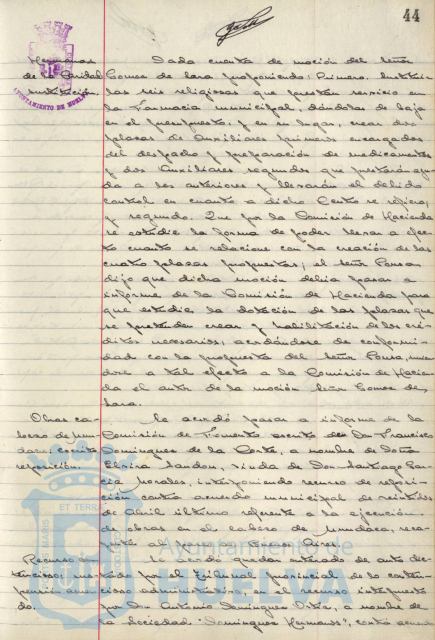 44
Hermanas
de la Caridad
sustitución.
AYUNTAMIENTO DE HUELVA
Dada cuenta de moción del señor
Gomez de Lara proponiendo: Primero. Sustituir
las seis religiosas que prestan servicio en
la Farmacia municipal, dándolas de baja
en el presupuesto, y en su lugar, crear dos
plazas de Auxiliares primeros encargados
del despacho y preparación de medicamentos
y dos Auxiliares segundos que prestarán ayu-
da a los anteriores y llevarán el debido
control en cuanto a dicho Centro se refiera,
y segundo. Que por la Comisión de Hacienda
se estudie la forma de poder llevar a efec-
to cuanto se relacione con la creación de las
cuatro plazas propuestas; el señor Ponsa
dijo que dicha moción debia pasar a
informe de la Comisión de Hacienda para
que estudie la dotación de las plazas que
se pretenden crear y habilitación de los cré-
ditos necesarios, acordándose de conformi-
dad con la propuesta del señor Ponsa,
a tal efecto a la Comisión de Hacien-
da el autor de la moción señor Gomez de
Lara.
Obras ca-
bezo de Mun-
daca, escrito
reposición.
Se acordó pasar a informe de la
Comisión de Fomento escrito de Don Francisco
Dominguez de la Corte, a nombre de Doña
Elvira Jandon, viuda de Don Santiago Gar-
cia Morales, interponiendo recurso de reposi-
ción contra acuerdo municipal de veintidos
de Abril último referente a la ejecución
de obras en el cabezo de Mundaca,
al paseo de Buenos Aires.
Recurso con-
tencioso; sus-
pensión acuer-
do.
Se acordó quedar enterado de auto dic-
tado por el Tribunal provincial de lo conten-
cioso administrativo, en el recurso interpuesto
por Don Antonio Dominguez Ortiz, a nombre de
la Sociedad "Dominguez Hermanos", contra acuer-
Ayuntamiento de
HUELVA